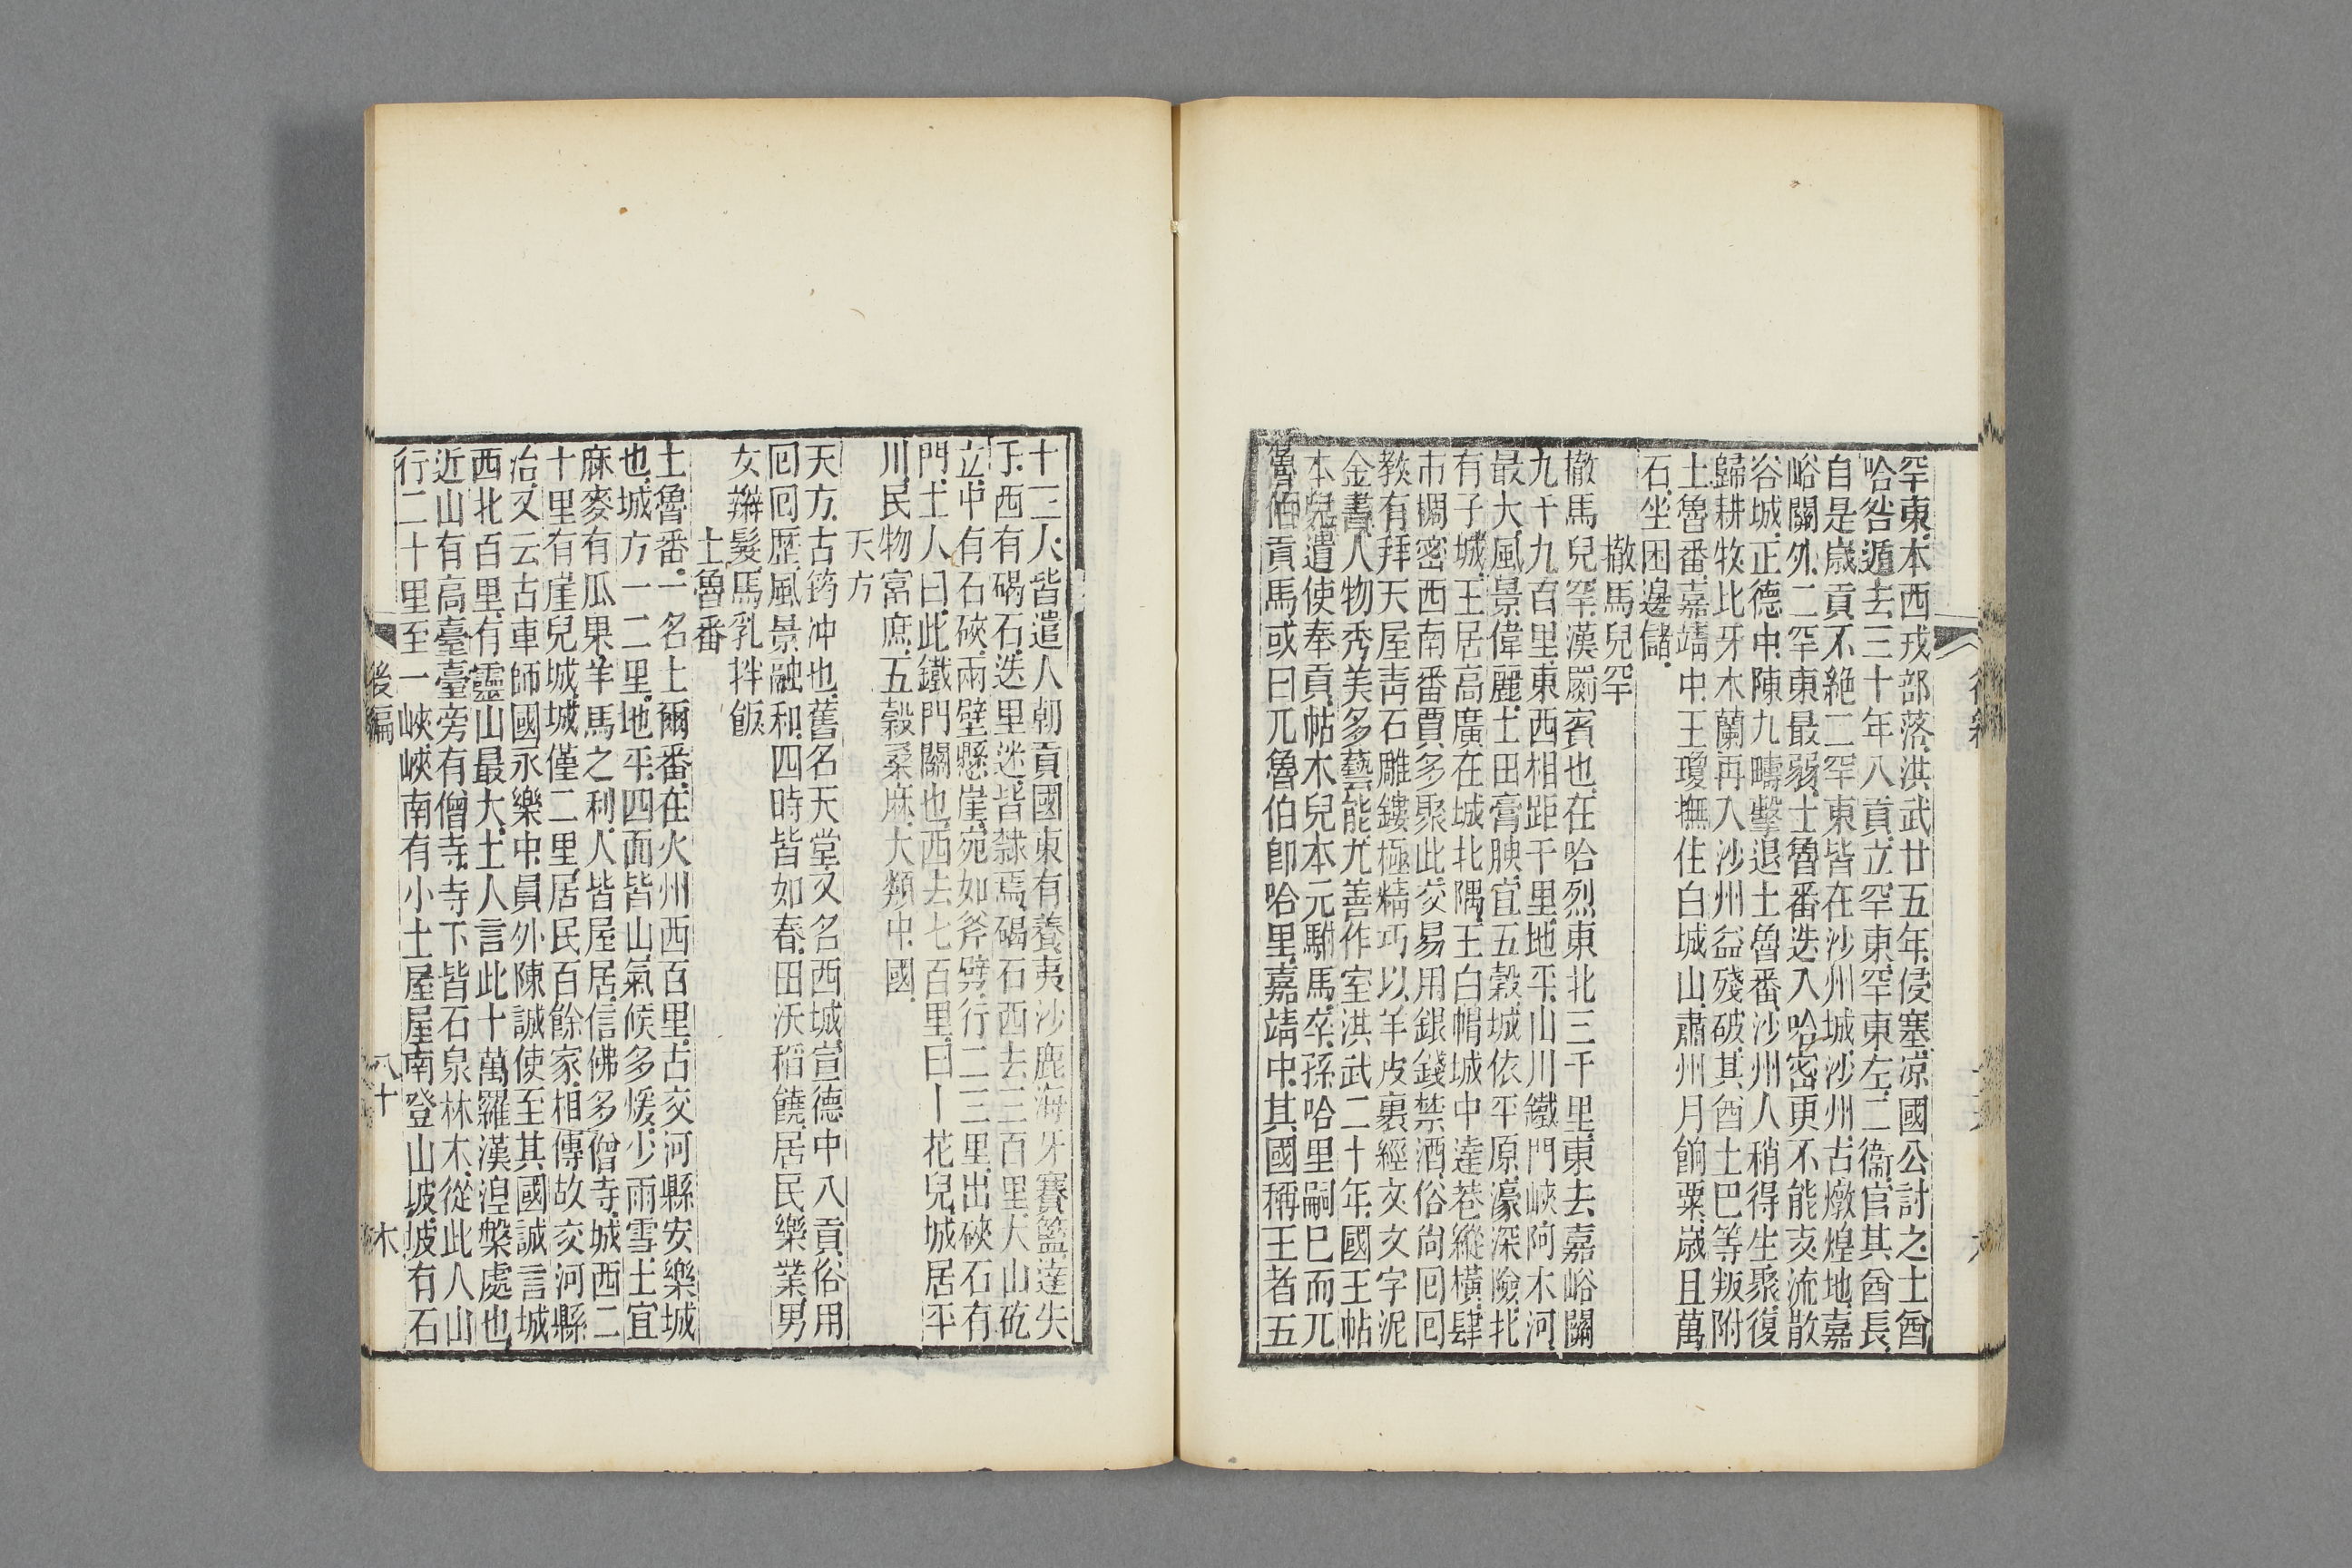 罕東本西戎部落洪武廿五年侵塞涼國公討之土酋
哈昝遁去三十年入貢立罕東罕東左二衞官其酋長
自是歳貢不絶二罕東皆在沙州城沙州古燉煌地嘉
峪關外二罕東最弱士魯番迭入哈密更不能支流散
谷城正德中陳九疇擊退土魯番沙州人稍得生聚復
歸耕牧比牙木蘭再入沙州益殘破其酋土巴等叛附
土魯番嘉靖中王瓊撫住白城山肅州月餉粟歳且萬
石坐困邊儲
撒馬兒罕
撒馬兒罕漢罽賓也在哈烈東北三千里東去嘉峪關
九十九百里東西相距千里地平山川鐵門峽阿木河
最大風景偉麗土田膏腴宜五穀城依平原濠深險北
有子城王居高廣在城北隅王白帽城中達巷縱橫肆
市稠密西南番賈多聚此交易用銀錢禁酒俗尚回回
敎有拜天屋青石雕鏤極精巧以羊皮裹經文文字泥
金書人物秀美多藝能尤善作室洪武二十年國王帖
本兒遣使奉貢帖木兒本元駙馬卒孫哈里嗣巳而兀
魯伯貢馬或曰兀魯伯卽哈里嘉靖中其國稱王者五
十三人皆遣人朝貢國東有養夷沙鹿海牙賽籃達失
于西有碣石迭里迷皆隸焉碣石西去三百里大山屹
立中有石硤兩壁懸崖宛如斧劈行二三里出硤石有
門土人曰此鐵門關也西去七百里曰卜花兒城居平
川民物富庶五穀桑麻大類中國
天方
天方古筠冲也舊名天堂又名西城宣德中入貢俗用
回回歷風景融和四時皆如春田沃稻饒居民樂業男
女辮髮馬乳拌飯
土魯番
土魯番一名土爾番在火州西百里古交河縣安樂城
也城方一二里地平四面皆山氣候多煖少雨雪土宜
麻麥有瓜果羊馬之利人皆屋居信佛多僧寺城西二
十里有崖兒城城僅二里居民百餘家相傳故交河縣
治又云古車師國永樂中員外陳誠使至其國誠言城
西北百里有靈山最大土人言此十萬羅漢湼槃處也
近山有高臺臺旁有僧寺寺下皆石泉林木從此入山
行二十里至一峽峽南有小土屋屋南登山坡坡有石
後編
八十
木